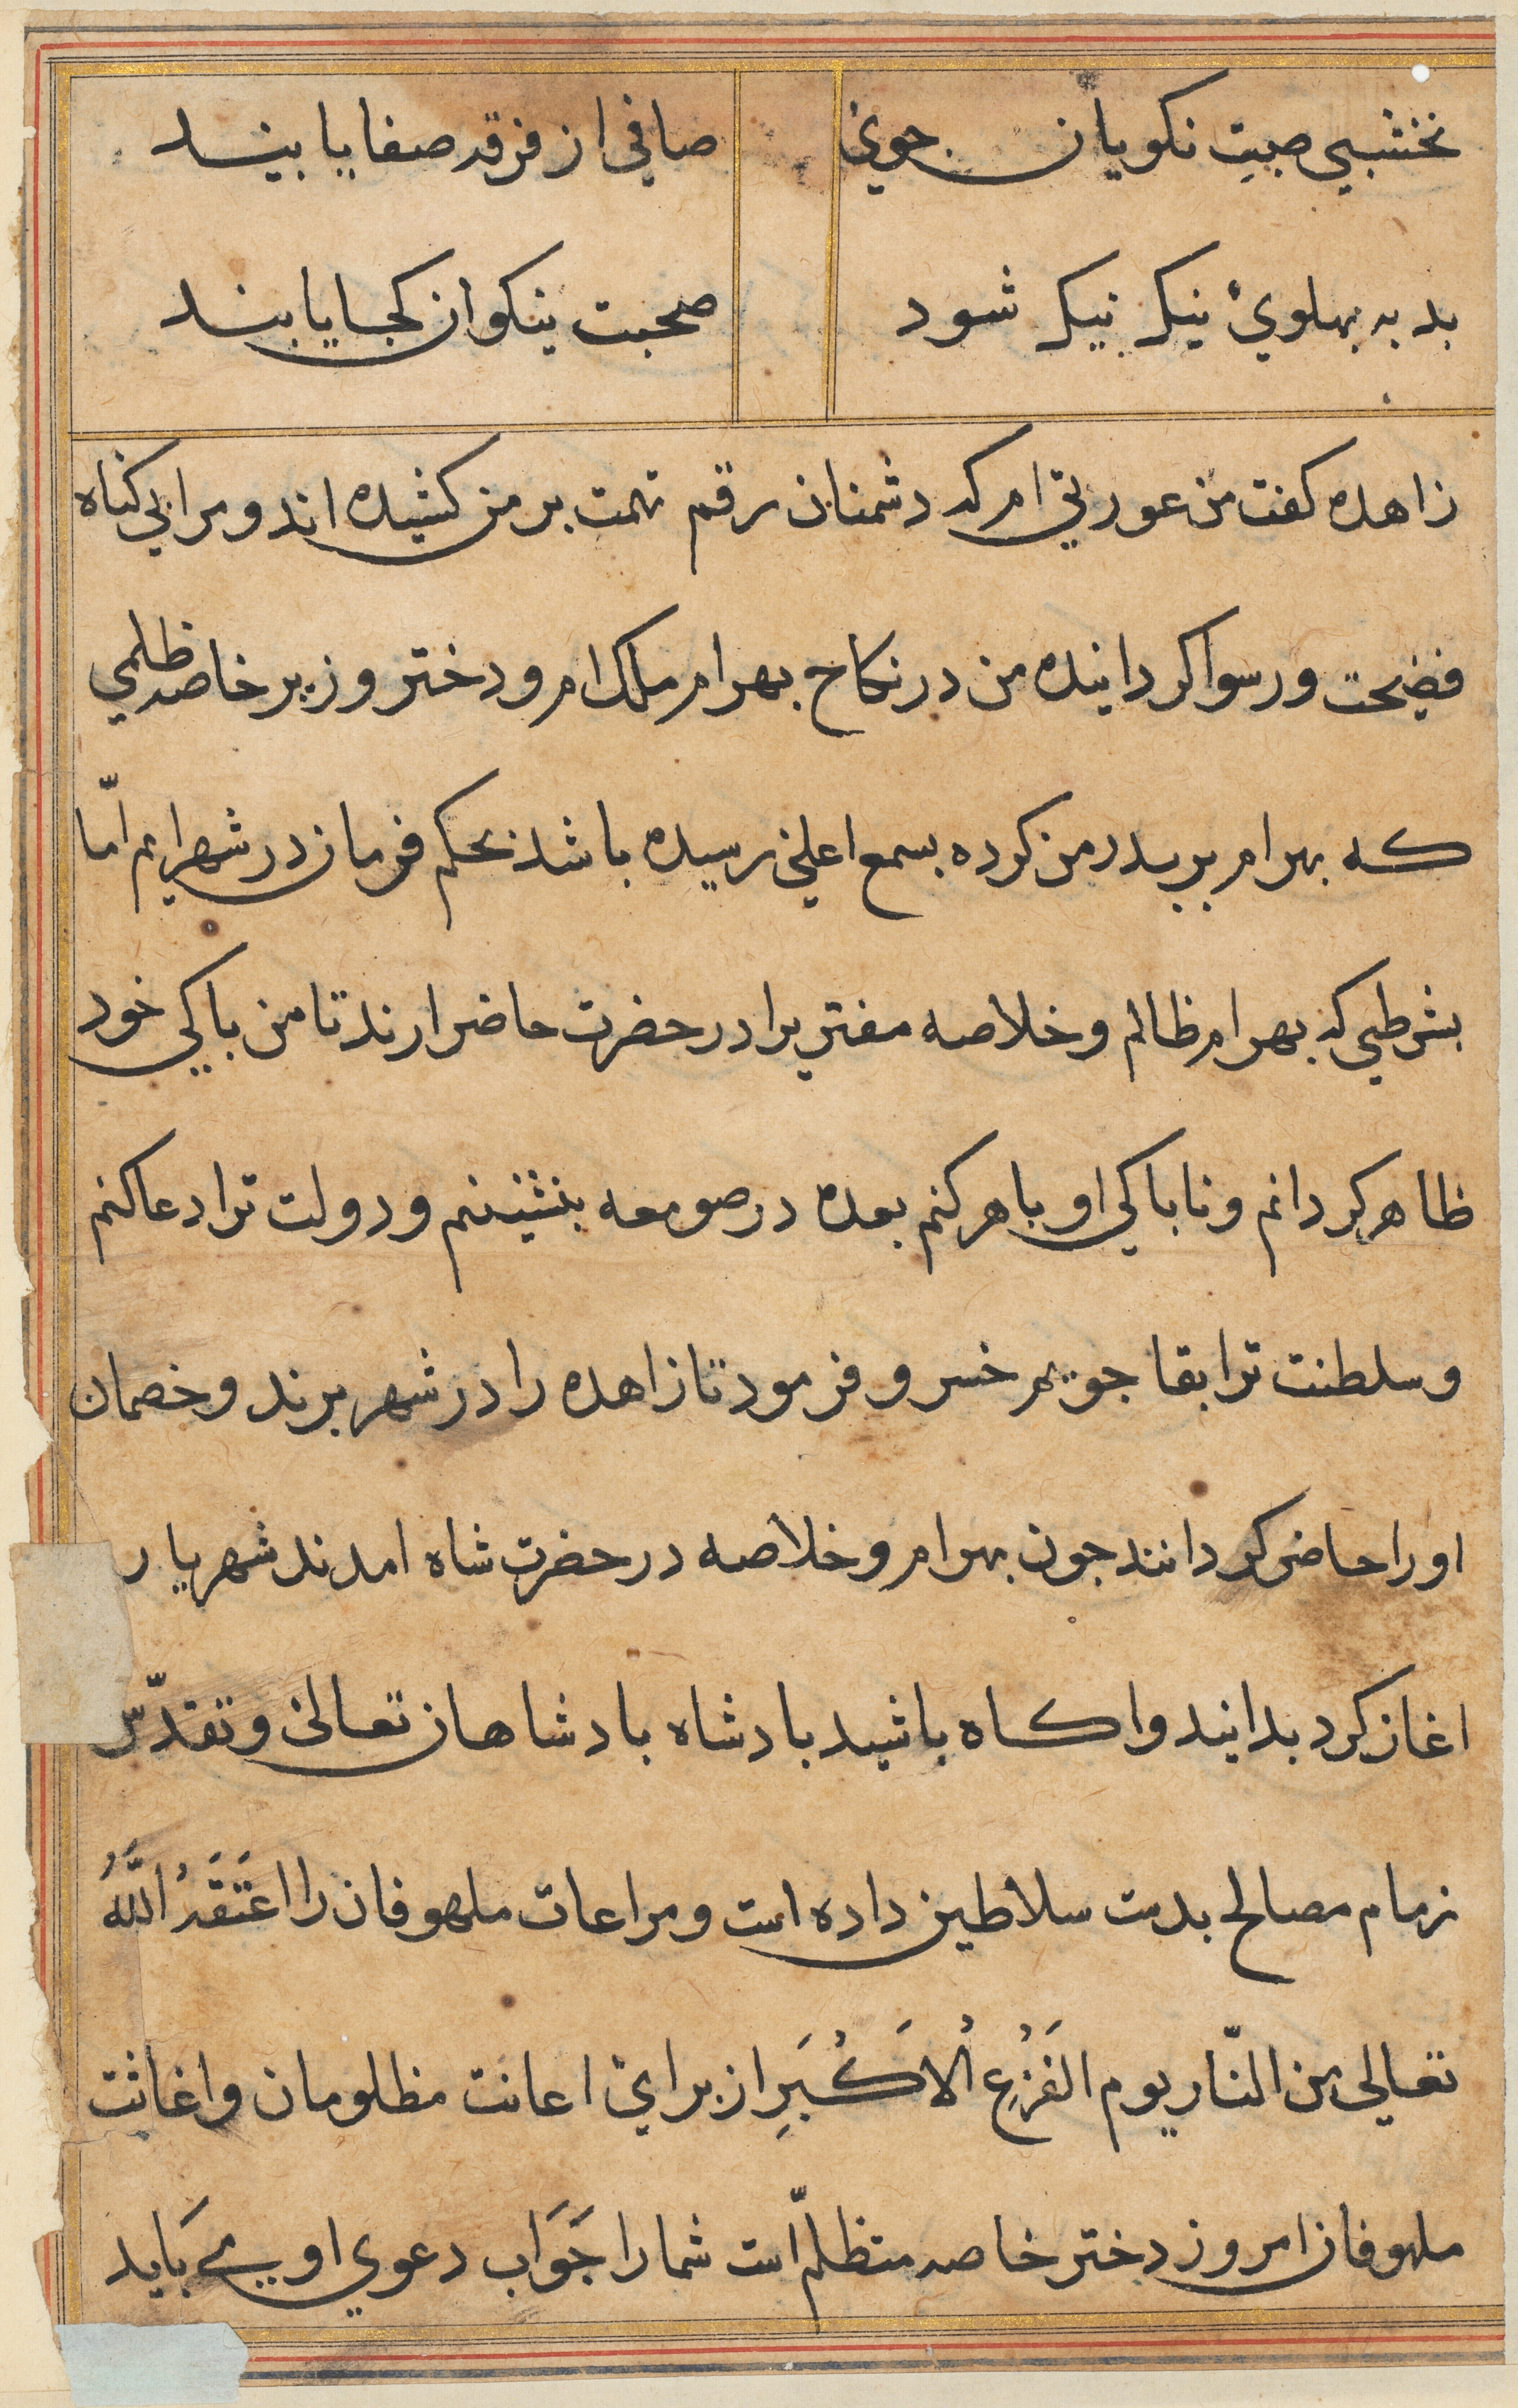 نخشبي صیت نکویان جوي
صافي از فرقه صفا یابند
بد به بهلوئ نیک نیک شود
صحبت نیکوان کجا یابند
زاهده کفت من عورتي ام که دشمنان رقم تهمت بر من کشیده اند و مرا بي کناه
فضیحت و رسوا کردانیده من در نکاح بهرام ملک ام و دختر وزیر خاصه ظلمي
که بهرام بر بدر من کرده بسمع اعلی رسیده باشد بحکم فرمان در شهر ایم امّا
بشرطي که بهرام ظالم و خلاصه مفتري را در حضرت حاضر ارند تا من باکي خود
ظاهر کردانم و ناباکي او باهر کنم بعده در صومعه بنشینم و دولت ترا دعا کنم
و سلطنت ترا بقا جویم خسرو فرمود تا زاهده را در شهر برند و خصمان
او را حاضر کردانند جون بهرام و خلاصه در حضرت شاه امدند شهریار
اغاز کرد بدانید و اکاه باشید بادشاه بادشاهان تعالی و تقدّس
زمام مصالح بدست سلاطین داده است و مراعات ملهوفان را اَعتَقَهُ اللّٰهُ
تعالی من النّار یوم الفَزَعِ الْاَکْبَرِ از براي اعانت مظلومان و اغاثت
ملهوفان امروز دختر خاصه متظلّم است شما را جَوَاب دعوي او مي بَاید